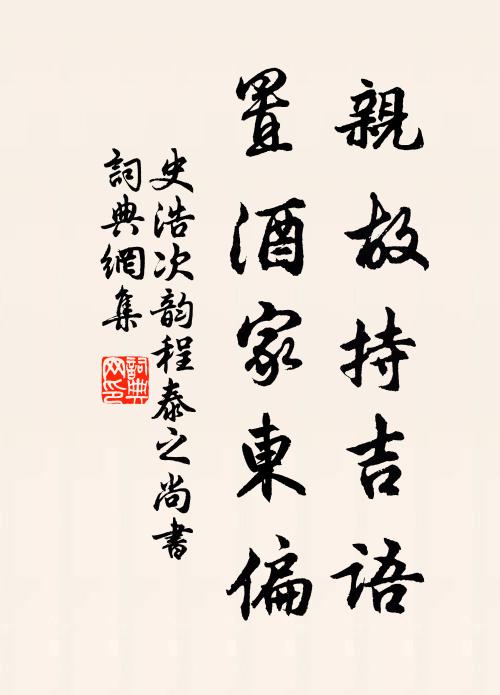 親故持吉語
置酒家東偏
史浩次韵程泰之尚書
詞典網集
詞典
网印